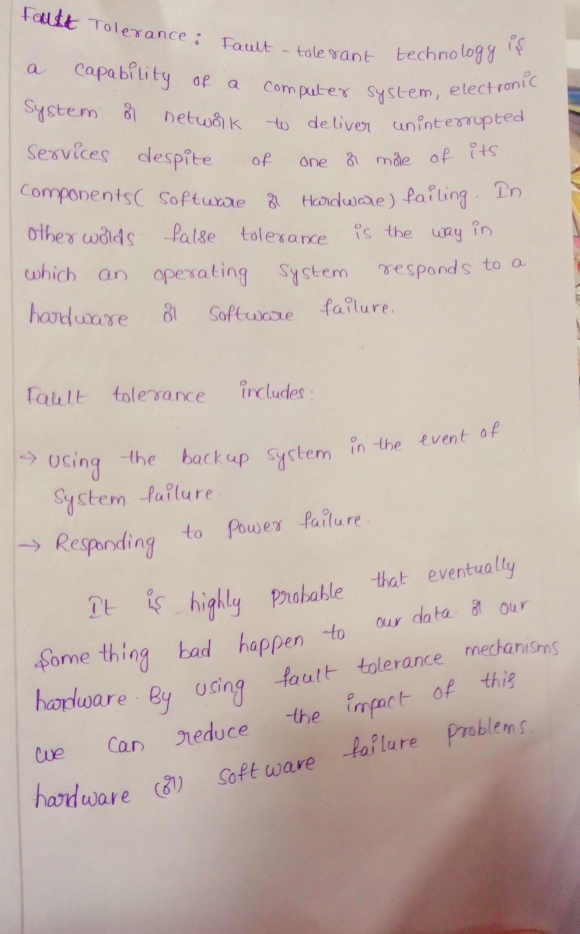 Fault Tolerance: Fault-tolerant technology is
a capability of a computer system, electronic
System or network to deliver uninterrupted
Services despite of one or more of its
Components( Software or Hardware) failing. In
other words false tolerance is the way in
which an operating System responds to a
hardware or Software failure.
Fault tolerance includes:
→ Using the backup system in the event of
System failure.
→ Responding to Power failure.
It is highly Probable that eventually
Some thing bad happen to our data or our
hardware. By using fault tolerance mechanisms
we can reduce the impact of this
hardware (or) software failure problems.